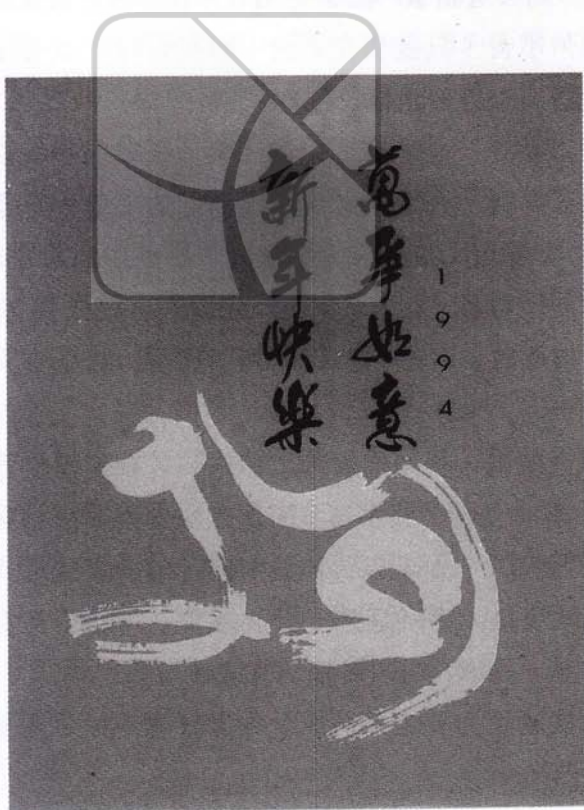 1994
萬事如意
新年快樂